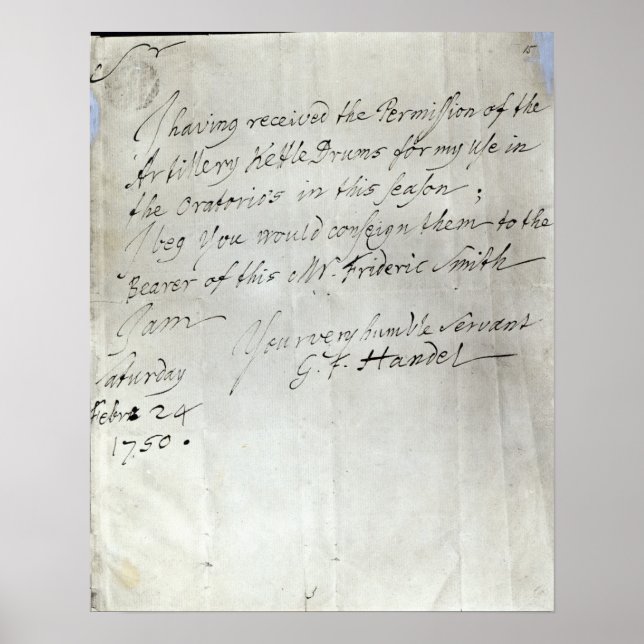 15
Sr
I having received the Permission of the
Artillery Kettle Drums for my use in
the Oratorio's in this season;
I beg You would consign them to the
Bearer of this Mr. Frideric Smith
I am
Your very humble Servant
G. F. Handel
Saturday
Febr 24
1750.